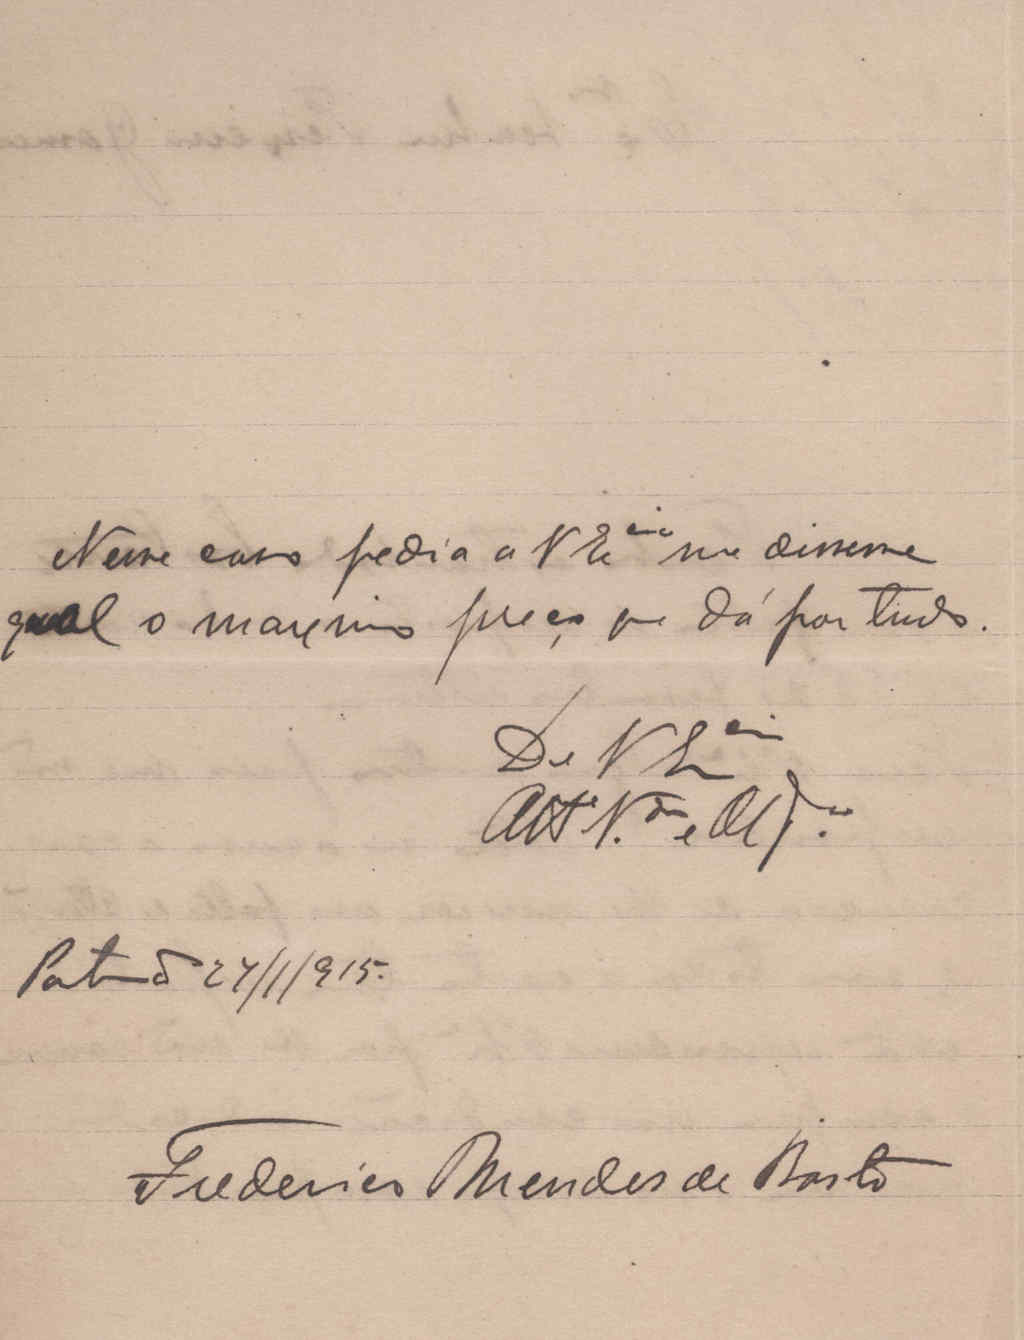 Nesse caso pedia a V Ex.cia me dissesse
qual o maximo preço que dá por tudo.
De V Ex.cia
Att.e V.dor e Obg.do
Portimão 27/1/915.
Frederico Mendes de Basto